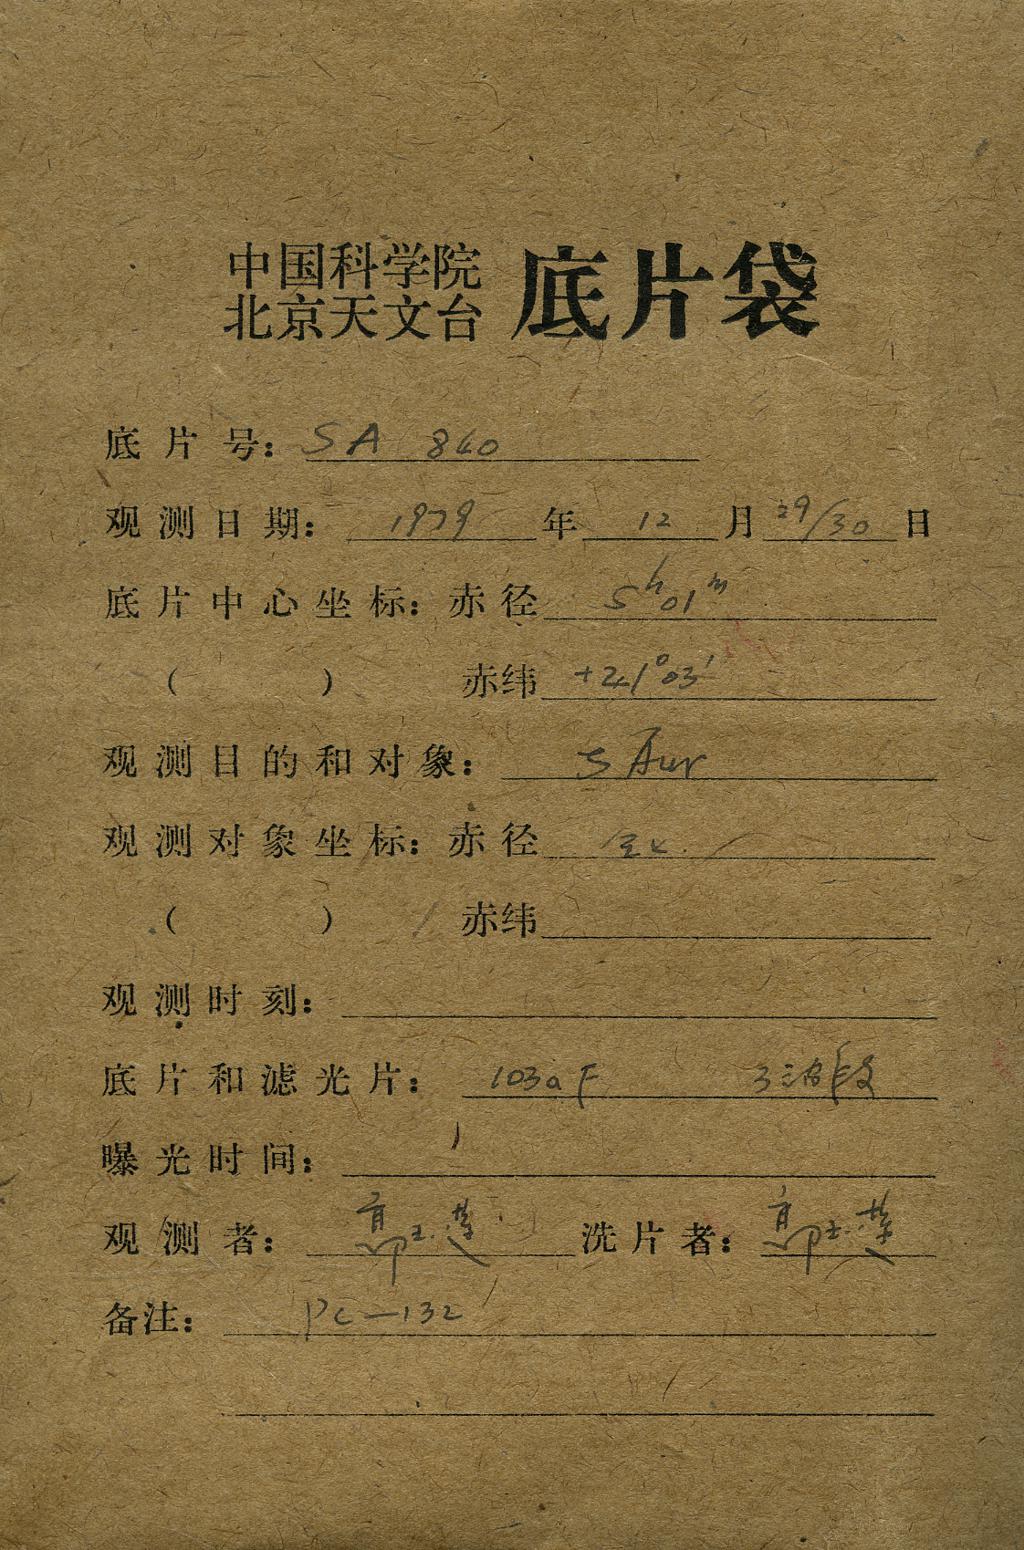 中国科学院
北京天文台 底片袋
底片号：SA 840
观测日期：1979年12月29/30日
底片中心坐标：赤径 5h01m
（ ） 赤纬 +41°03′
观测目的和对象：S Aur
观测对象坐标：赤径
（ ） 赤纬
观测时刻：
底片和滤光片：103aF 3波段
曝光时间：
观测者：郭玉 洗片者：郭玉
备注：PC—132